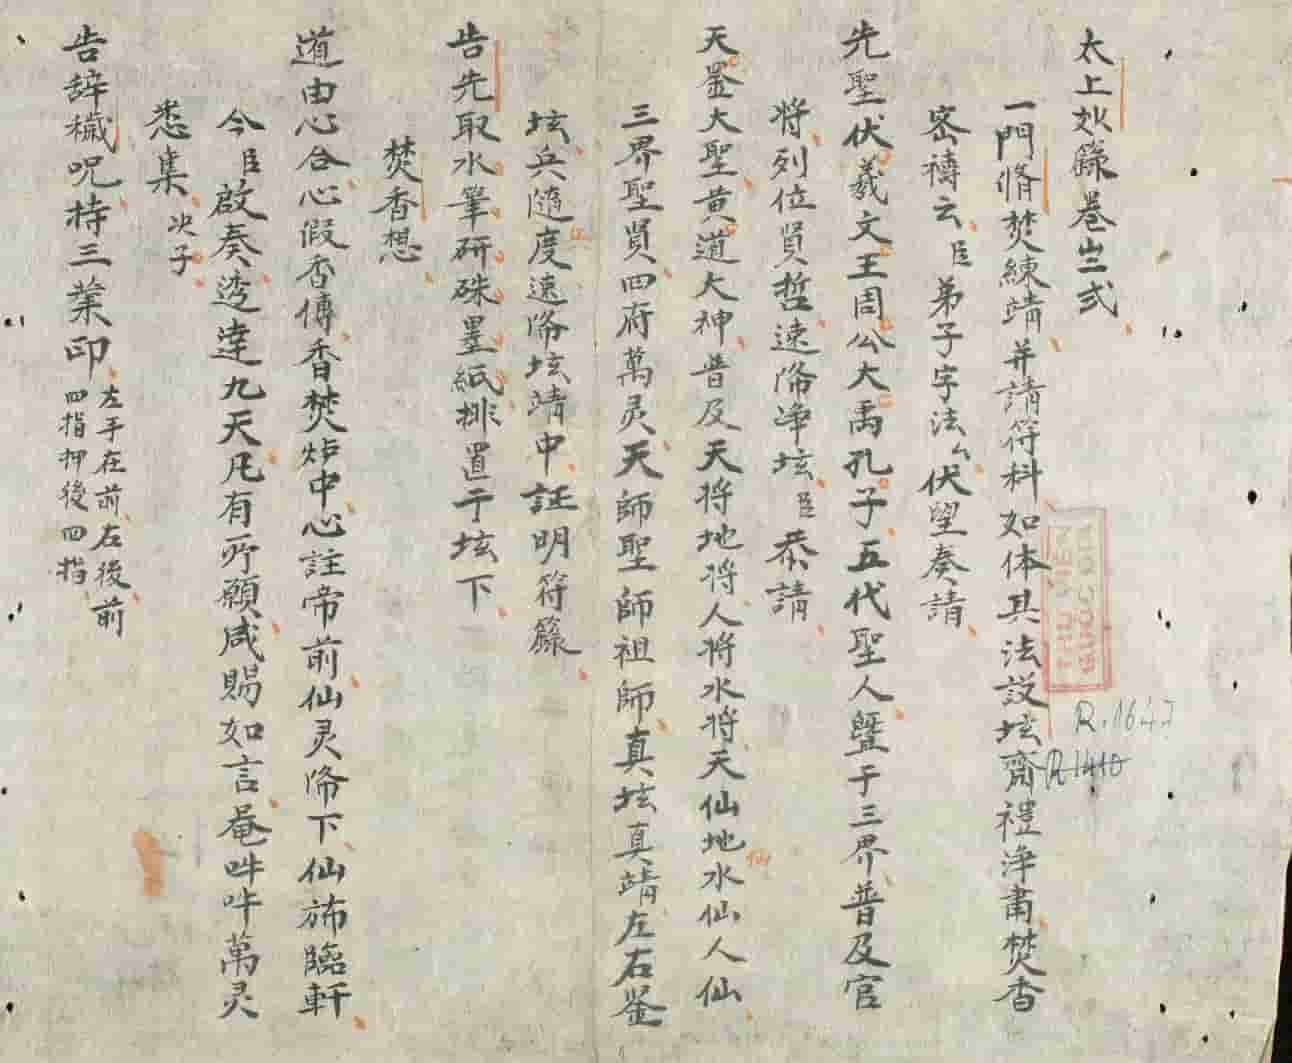 太上欻籙巻亖弍
一門脩焚練靖并請符科如体其法設坛齋禮淨肅焚香
密禱云臣弟子字法厶伏望奏請
先聖伏羲文王周公大禹孔子五代聖人曁于三界普及官
将列位賢哲速降净坛臣恭請
天罡大聖黄道大神普及天将地将人将水将天仙地水仙人仙
仙
三界聖賢四府萬灵天師聖師祖師真坛真靖左右鉴
坛兵隨度速降坛靖中証明符籙
告先取水筆研硃墨紙排置于坛下
焚香想
道由心合心假香傳香焚炉中心註帝前仙灵降下仙斾臨軒
今臣啟奏透達九天凡有所願咸賜如言奄吽吽萬灵
悉集决子
告辞穢呪持三業印左手在前右後前
四指押後四指
THƯ VIỆN
R.1647
R 1410